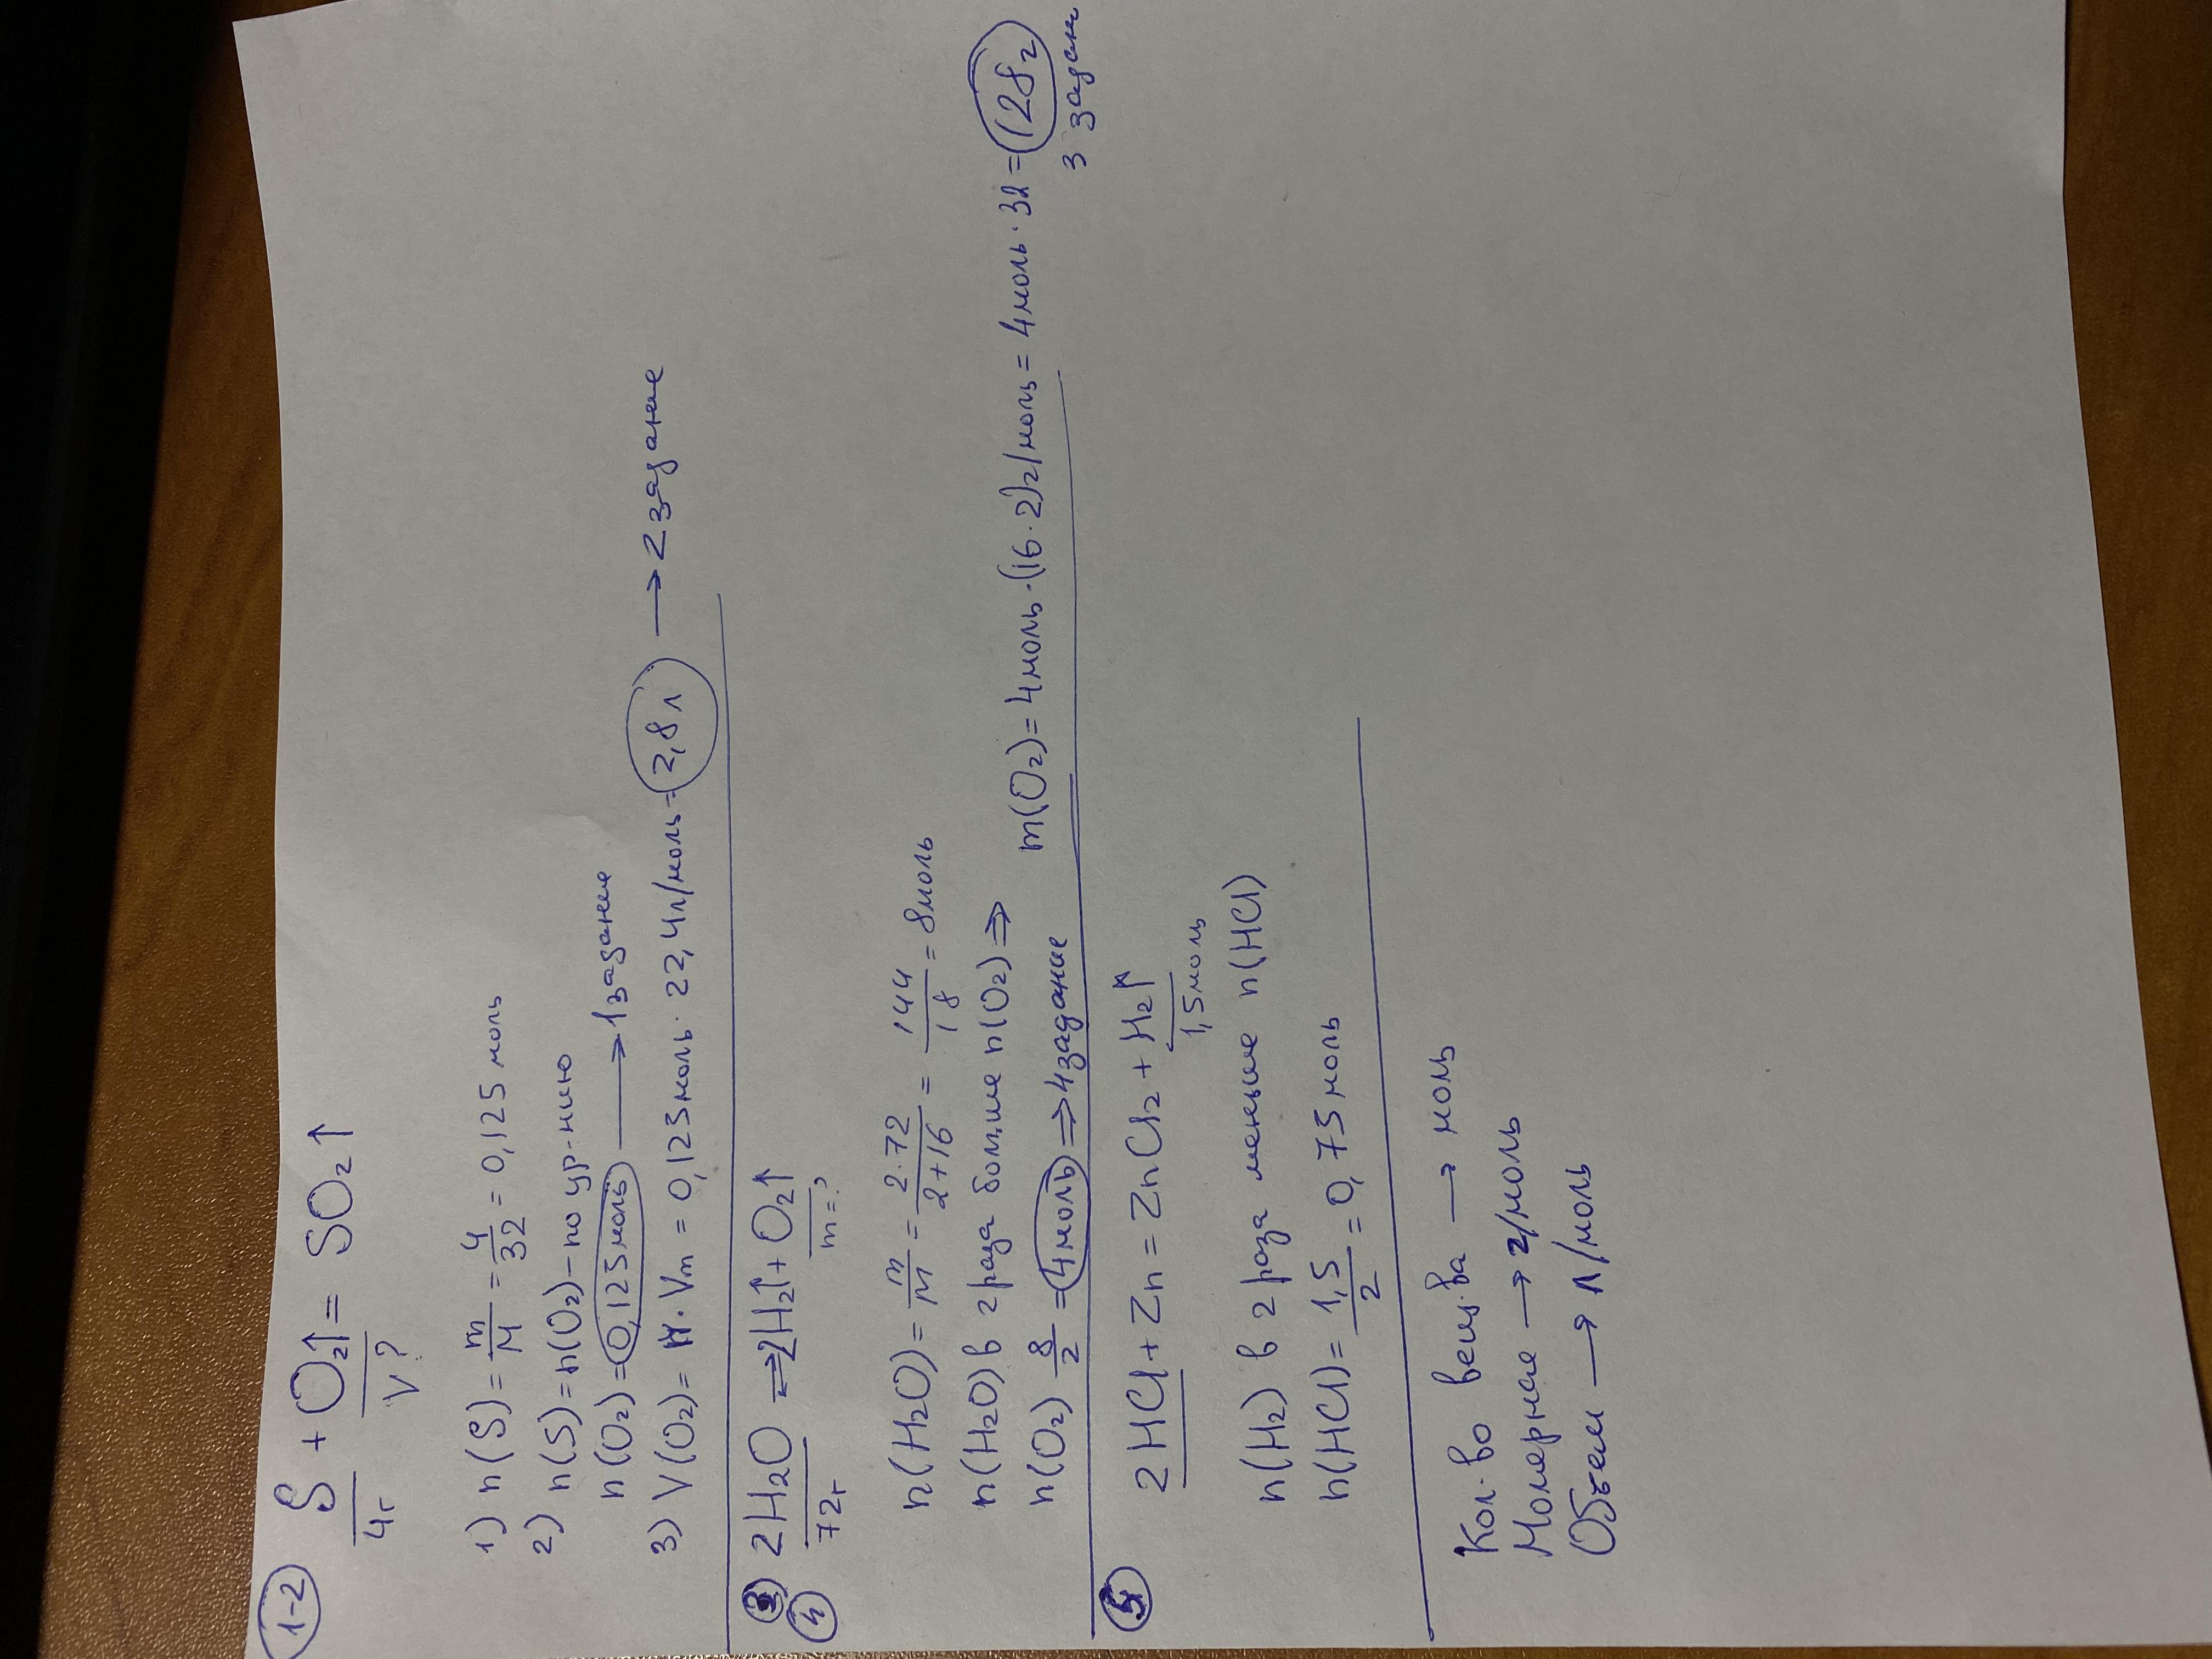 1-2
S + O₂↑ = SO₂↑
4г V?
1) n(S) = m/M = 4/32 = 0,125 моль
2) n(S) = n(O₂) - по ур-нию
n(O₂) = 0,125 моль → 1 задание
3) V(O₂) = n · Vm = 0,125 моль · 22,4 л/моль = 2,8 л → 2 задание
3
4
2H₂O ⇌ 2H₂↑ + O₂↑
72г m=?
n(H₂O) = m/M = 2·72/2+16 = 144/18 = 8 моль
n(H₂O) в 2 раза больше n(O₂) ⇒
n(O₂) 8/2 = 4 моль ⇒ 4 задание
m(O₂) = 4 моль · (16·2) г/моль = 4 моль · 32 = 128 г
3 задан
5
2HCl + Zn = ZnCl₂ + H₂↑
1,5 моль
n(H₂) в 2 раза меньше n(HCl)
n(HCl) = 1,5/2 = 0,75 моль
Кол-во вещ-ва → моль
Молерная → г/моль
Объем → л/моль